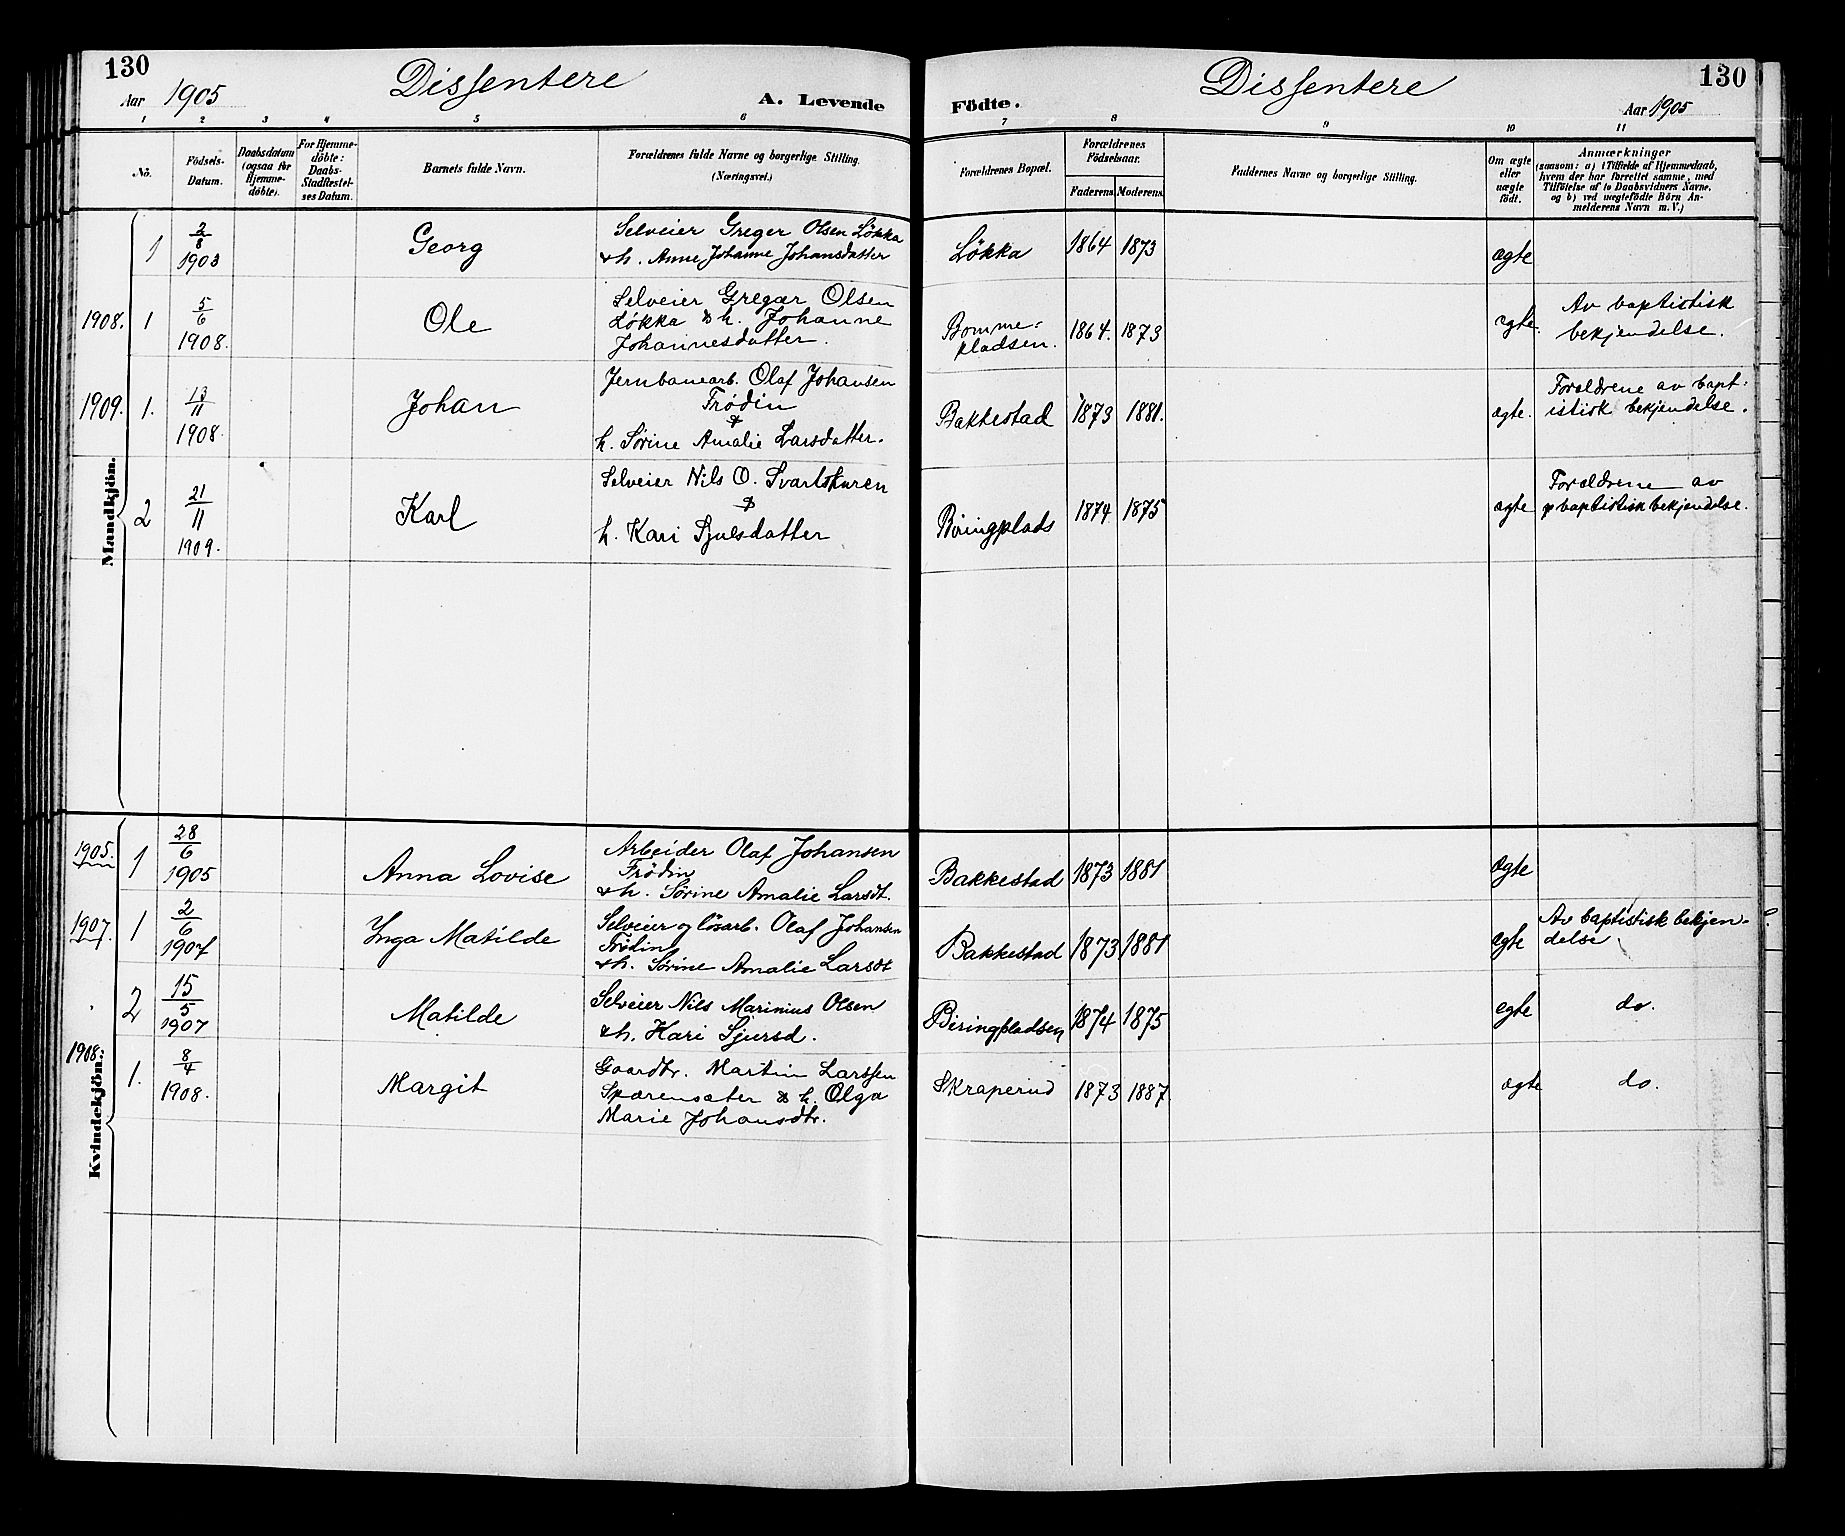 130
Aar 1905
Dissentere
A. Levende
Födte.
Dissentere
130
Aar 1905
1 2 3 4 5 6 7 8 9 10 11
No.
Födsels-
Datum.
Daabsdatum
(ogsaa for
Hjemme-
döbte).
For Hjemme-
döbte:
Daabs-
Stadfæstel-
ses Datum.
Barnets fulde Navn.
Forældrenes fulde Navne og borgerlige Stilling.
(Næringsvei.)
Forældrenes Bopæl.
Forældrenes
Födselsaar.
Faderens. Moderens.
Faddernes Navne og borgerlige Stilling.
Om ægte
eller
uægte
födt.
Anmærkninger
(saasom: a) i Tilfælde af Hjemmedaab,
hvem der har forrettet samme, med
Tilföielse af to Daabsvidners Navne,
og b) ved uægtefödte Börn An-
melderens Navn m. V.)
Mandkjön.
1
2/8
1903
Georg
Selveier Greger Olsen Løkka
& h. Anne Johanne Johansdatter
Løkka
1864 1873
ægte
1908. 1
5/6
1908.
Ole
Selveier Gregar Olsen
Løkka & h. Johanne
Johannesdatter.
Bomme-
pladsen.
1864. 1873
ægte.
Av baptistisk
bekjendelse.
1909. 1.
13/11
1908.
Johan
Jernbanearb. Olaf Johansen
Frødin
&
h. Sørine Amalie Larsdatter.
Bakkestad
1873 1881.
ægte.
Forældrene av bapt-
istisk bekjendelse.
2
21/11
1909.
Karl
Selveier Nils O. Svartskuren
&
h. Kari Sjulsdatter
Biringplads
1874 1875
ægte
Forældrene av
baptistisk bekjendelse.
Kvindekjön.
1905. 1
28/6
1905
Anna Lovise
Arbeider Olaf Johansen
Frødin
& h. Sørine Amalie Larsdt.
Bakkestad
1873 1881
ægte
1907. 1
2/6
1907
Inga Matilde
Selveier og løsarb. Olaf Johansen
Frødin
& h. Sørine Amalie Larsdt
Bakkestad
1873 1881
ægte
Av baptistisk bekjen-
delse
2
15/5
1907
Matilde
Selveier Nils Marinius Olsen
& h. Kari Sjursd.
Biringpladsen
1874 1875
egte
do.
1908. 1.
8/4
1908.
Margit
Gaardbr. Martin Larssen
Sparensæter & h. Olga
Marie Johansdtr.
Skraperud
1873 1887
ægte
do.